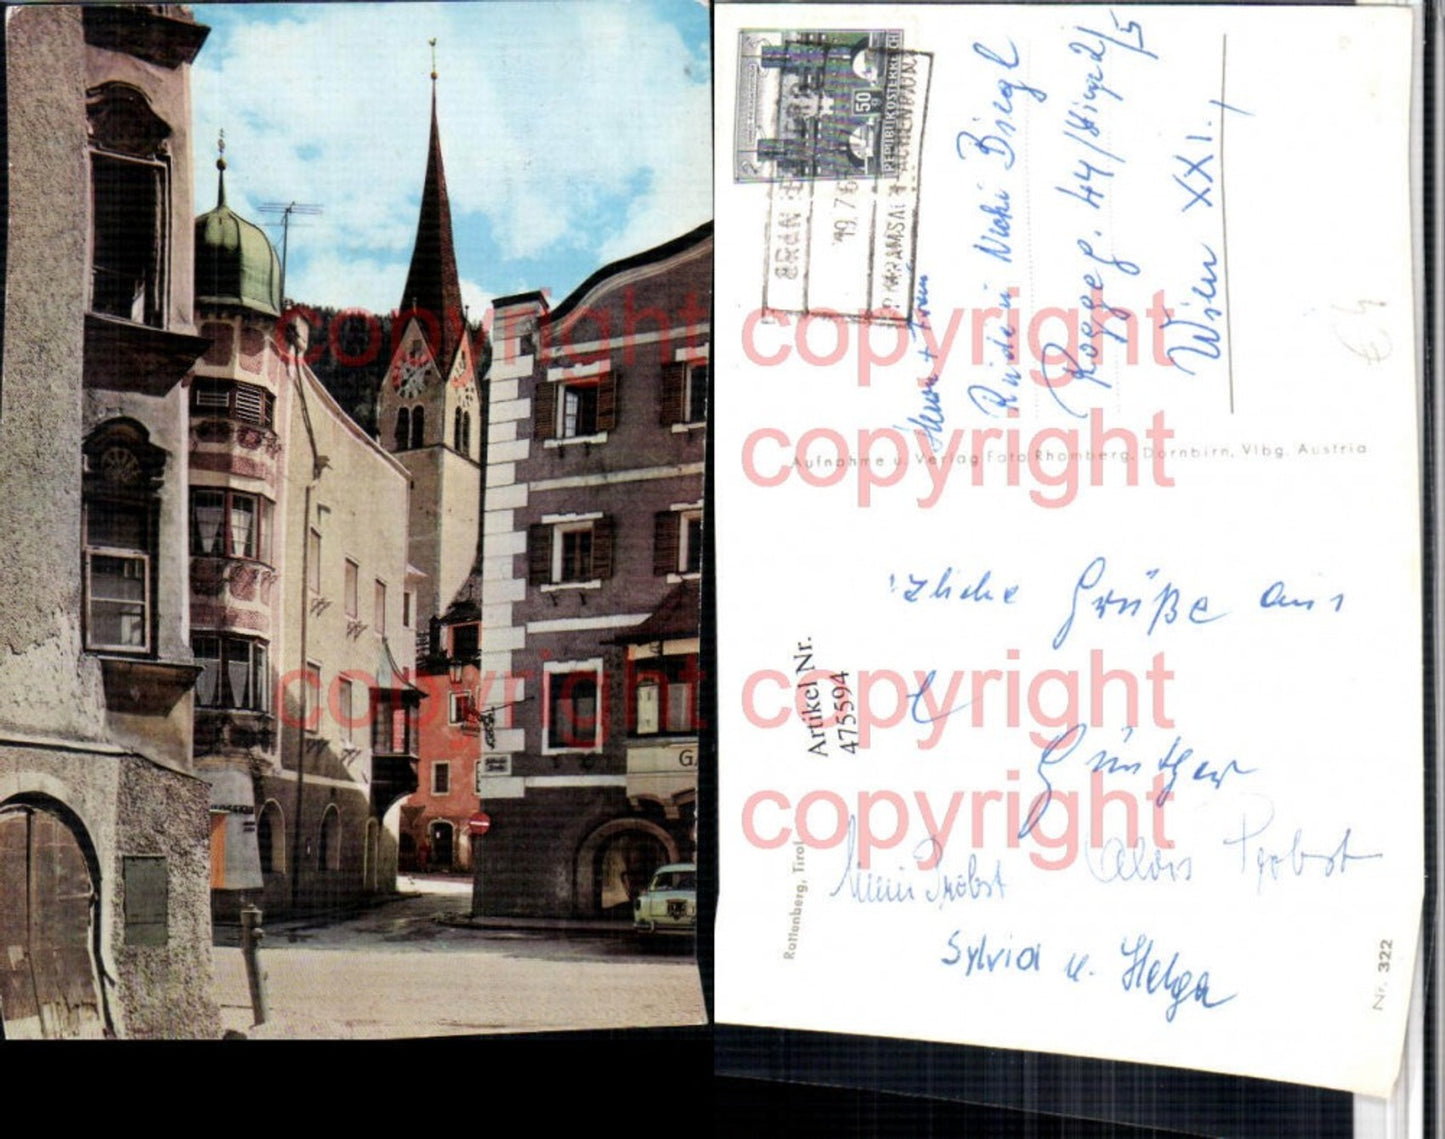 GA
50 g
REPUBLIK ÖSTERREICH
19.7.6
KRAMSACH-ACHENRAIN
Herrn + Frau
Rudi u. Nicki Biegl
Roggeg. 44/Stiege 2/5
Wien XXI.,
Aufnahme u. Verlag Foto Rhomberg, Dornbirn, Vlbg. Austria
€4
zliche Grüße aus
Günther
Mimi Probst Alois Probst
Sylvia u. Helga
Artikel Nr.
475594
Rattenberg, Tirol
Nr. 322
copyright copyright
copyright
copyright copyright
copyright copyright